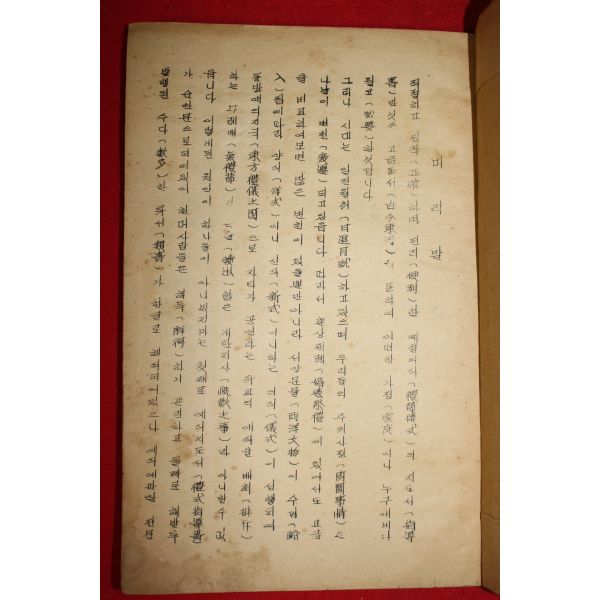 머리말
적절하고 정확(正確)하며 편리(便利)한 예절의식(禮節儀式)의 지도서(指導
書)란것은 고금동서(古今東西)는 동의의 어떠한 가정(家庭)이나 누구에게나
필요(必要)한것입니다
그러나 시대는 일진월취(日進月就)하고있으며 우리들의 주위사정(周圍事情)은
나날이 변천(變遷)되고있읍니다 따라서 혼상제례(婚喪祭禮)에 있어서도 고금
을 비교하여보면 많은 변천이 있을뿐만아니라 서양문물(西洋文物)이 수입(輸
入)됨에따라 양식(洋式)이니 신식(新式)이니하는 의식(儀式)이 실행되며
동방예의지국(東方禮儀之國)으로 자타가 공인하는 우리의 예의를 배척(排斥)
하는 무례배(無禮輩)가 출(出)함은 개탄지사(慨歎之事)라 아니할수 없
읍니다 이렇게된 원인이 하나둘이 아니겠지마는 첫째로 예식지도서(禮式指導書)
가 순한문으로되어있어 현대사람들은 해득(解得)하기 곤란하고 둘째로 해방후
발행된 수다(數多)한 류서(類書)가 한글로 해석되어있으나 예식에대한 전문